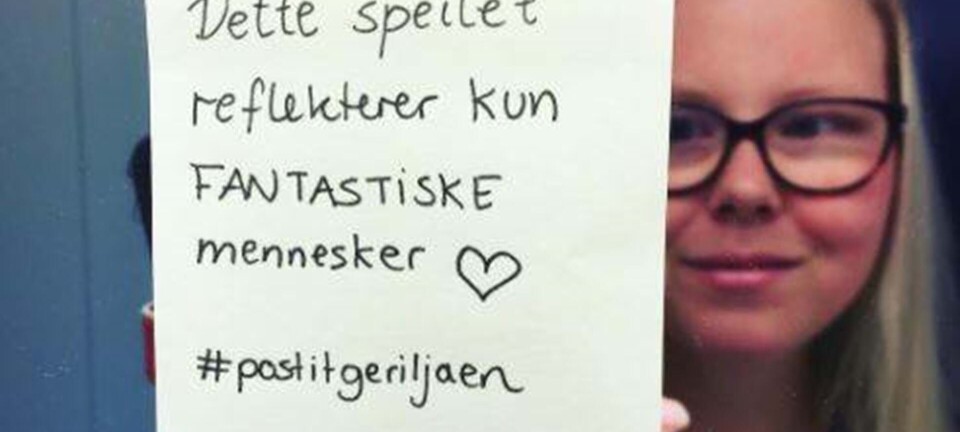 Dette speilet
reflekterer kun
FANTASTiSKE
mennesker ♡
#postitgeriljaen